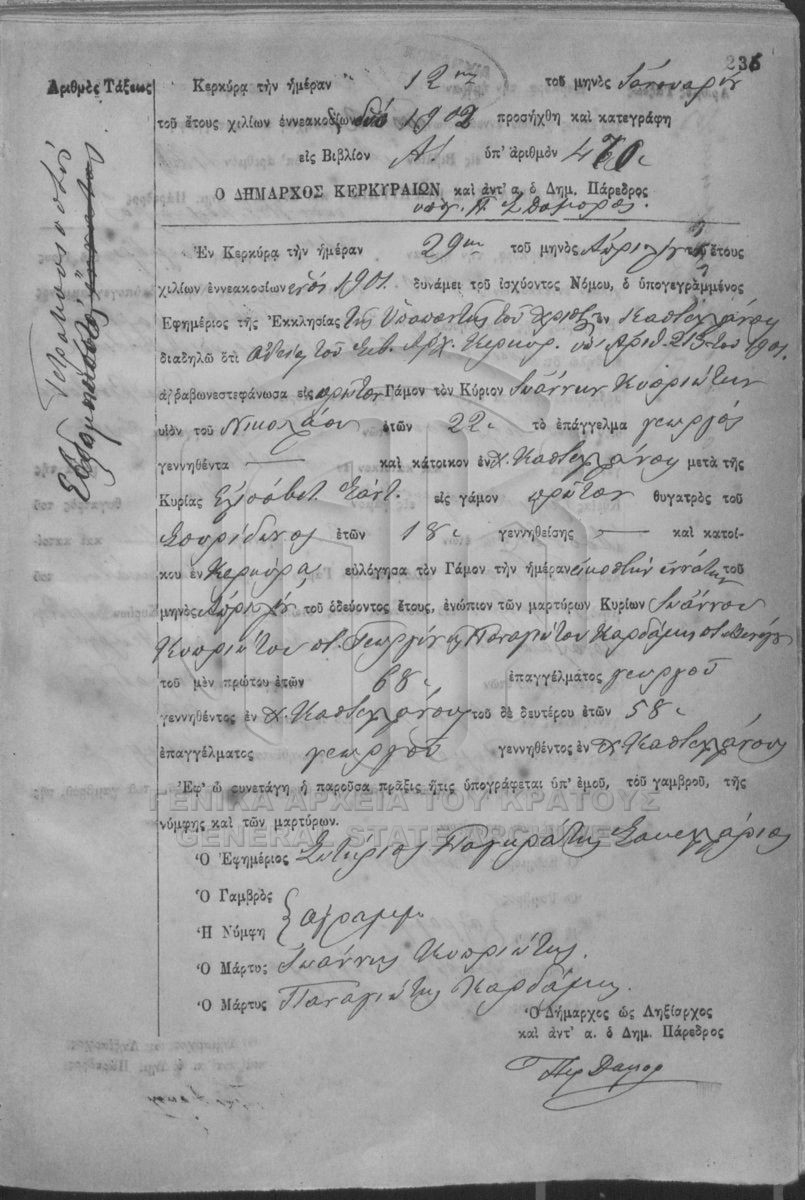 236
Ἀριθμὸς Τάξεως
Τετρακοσιοστὴ
Κερκύρᾳ τὴν ἡμέραν 12ην τοῦ μηνὸς Ἰανουαρίου
τοῦ ἔτους χιλίων ἐννεακοσίων δύο 1902 προσήχθη καὶ κατεγράφη
εἰς Βιβλίον Α! ὑπ' ἀριθμὸν 470
Ὁ ΔΗΜΑΡΧΟΣ ΚΕΡΚΥΡΑΙΩΝ καὶ ἀντ' α. ὁ Δημ. Πάρεδρος
Ἐν Κερκύρᾳ τὴν ἡμέραν 29ην τοῦ μηνὸς Ἀπριλίου τοῦ ἔτους
χιλίων ἐννεακοσίων ἑνὸς 1901 δυνάμει τοῦ ἰσχύοντος Νόμου, ὁ ὑπογεγραμμένος
Ἐφημέριος τῆς Ἐκκλησίας τῆς Ὑπαπαντῆς τοῦ Χριστοῦ ἐν Καστελλάνοις
διαδηλῶ ὅτι ἀδείᾳ τοῦ Σεβ. Ἀρχ. Κερκύρ. ὑπ' Ἀριθ. 213 τοῦ 1901.
ἀῤῥαβωνεστεφάνωσα εἰς πρῶτον Γάμον τὸν Κύριον Ἰωάννην Κυπριώτην
υἱὸν τοῦ Νικολάου ἐτῶν 22 τὸ ἐπάγγελμα γεωργός
γεννηθέντα — καὶ κάτοικον ἐν χ. Καστελλάνοις μετὰ τῆς
Κυρίας Ἐλισάβετ εἰς γάμον πρῶτον θυγατρὸς τοῦ
Σπυρίδωνος ἐτῶν 18 γεννηθείσης — καὶ κατοί-
κου ἐν Κερκύρᾳ εὐλόγησα τὸν Γάμον τὴν ἡμέραν εἰκοστὴν ἐννάτην τοῦ
μηνὸς Ἀπριλίου τοῦ ὁδεύοντος ἔτους, ἐνώπιον τῶν μαρτύρων Κυρίων Ἰωάννου
Κυπριώτου Γεωργίου Παναγιώτου Καρδάμη
τοῦ μὲν πρώτου ἐτῶν 68 ἐπαγγέλματος γεωργοῦ
γεννηθέντος ἐν χ. Καστελλάνους τοῦ δὲ δευτέρου ἐτῶν 58
ἐπαγγέλματος γεωργοῦ γεννηθέντος ἐν χ. Καστελλάνους
Ἐφ' ᾧ συνετάγη ἡ παροῦσα πρᾶξις ἥτις ὑπογράφεται ὑπ' ἐμοῦ, τοῦ γαμβροῦ, τῆς
νύμφης καὶ τῶν μαρτύρων.
ΓΕΝΙΚΑ ΑΡΧΕΙΑ ΤΟΥ ΚΡΑΤΟΥΣ
GENERAL STATE ARCHIVES
Ὁ Ἐφημέριος Σωτήριος Παγκράτης Σακελλάριος
Ὁ Γαμβρὸς
Ἡ Νύμφη } ἀγράμμ.
Ὁ Μάρτυς Ἰωάννης Κυπριώτης.
Ὁ Μάρτυς Παναγιώτης Καρδάμης.
Ὁ Δήμαρχος ὡς Ληξίαρχος
καὶ ἀντ' α. ὁ Δημ. Πάρεδρος